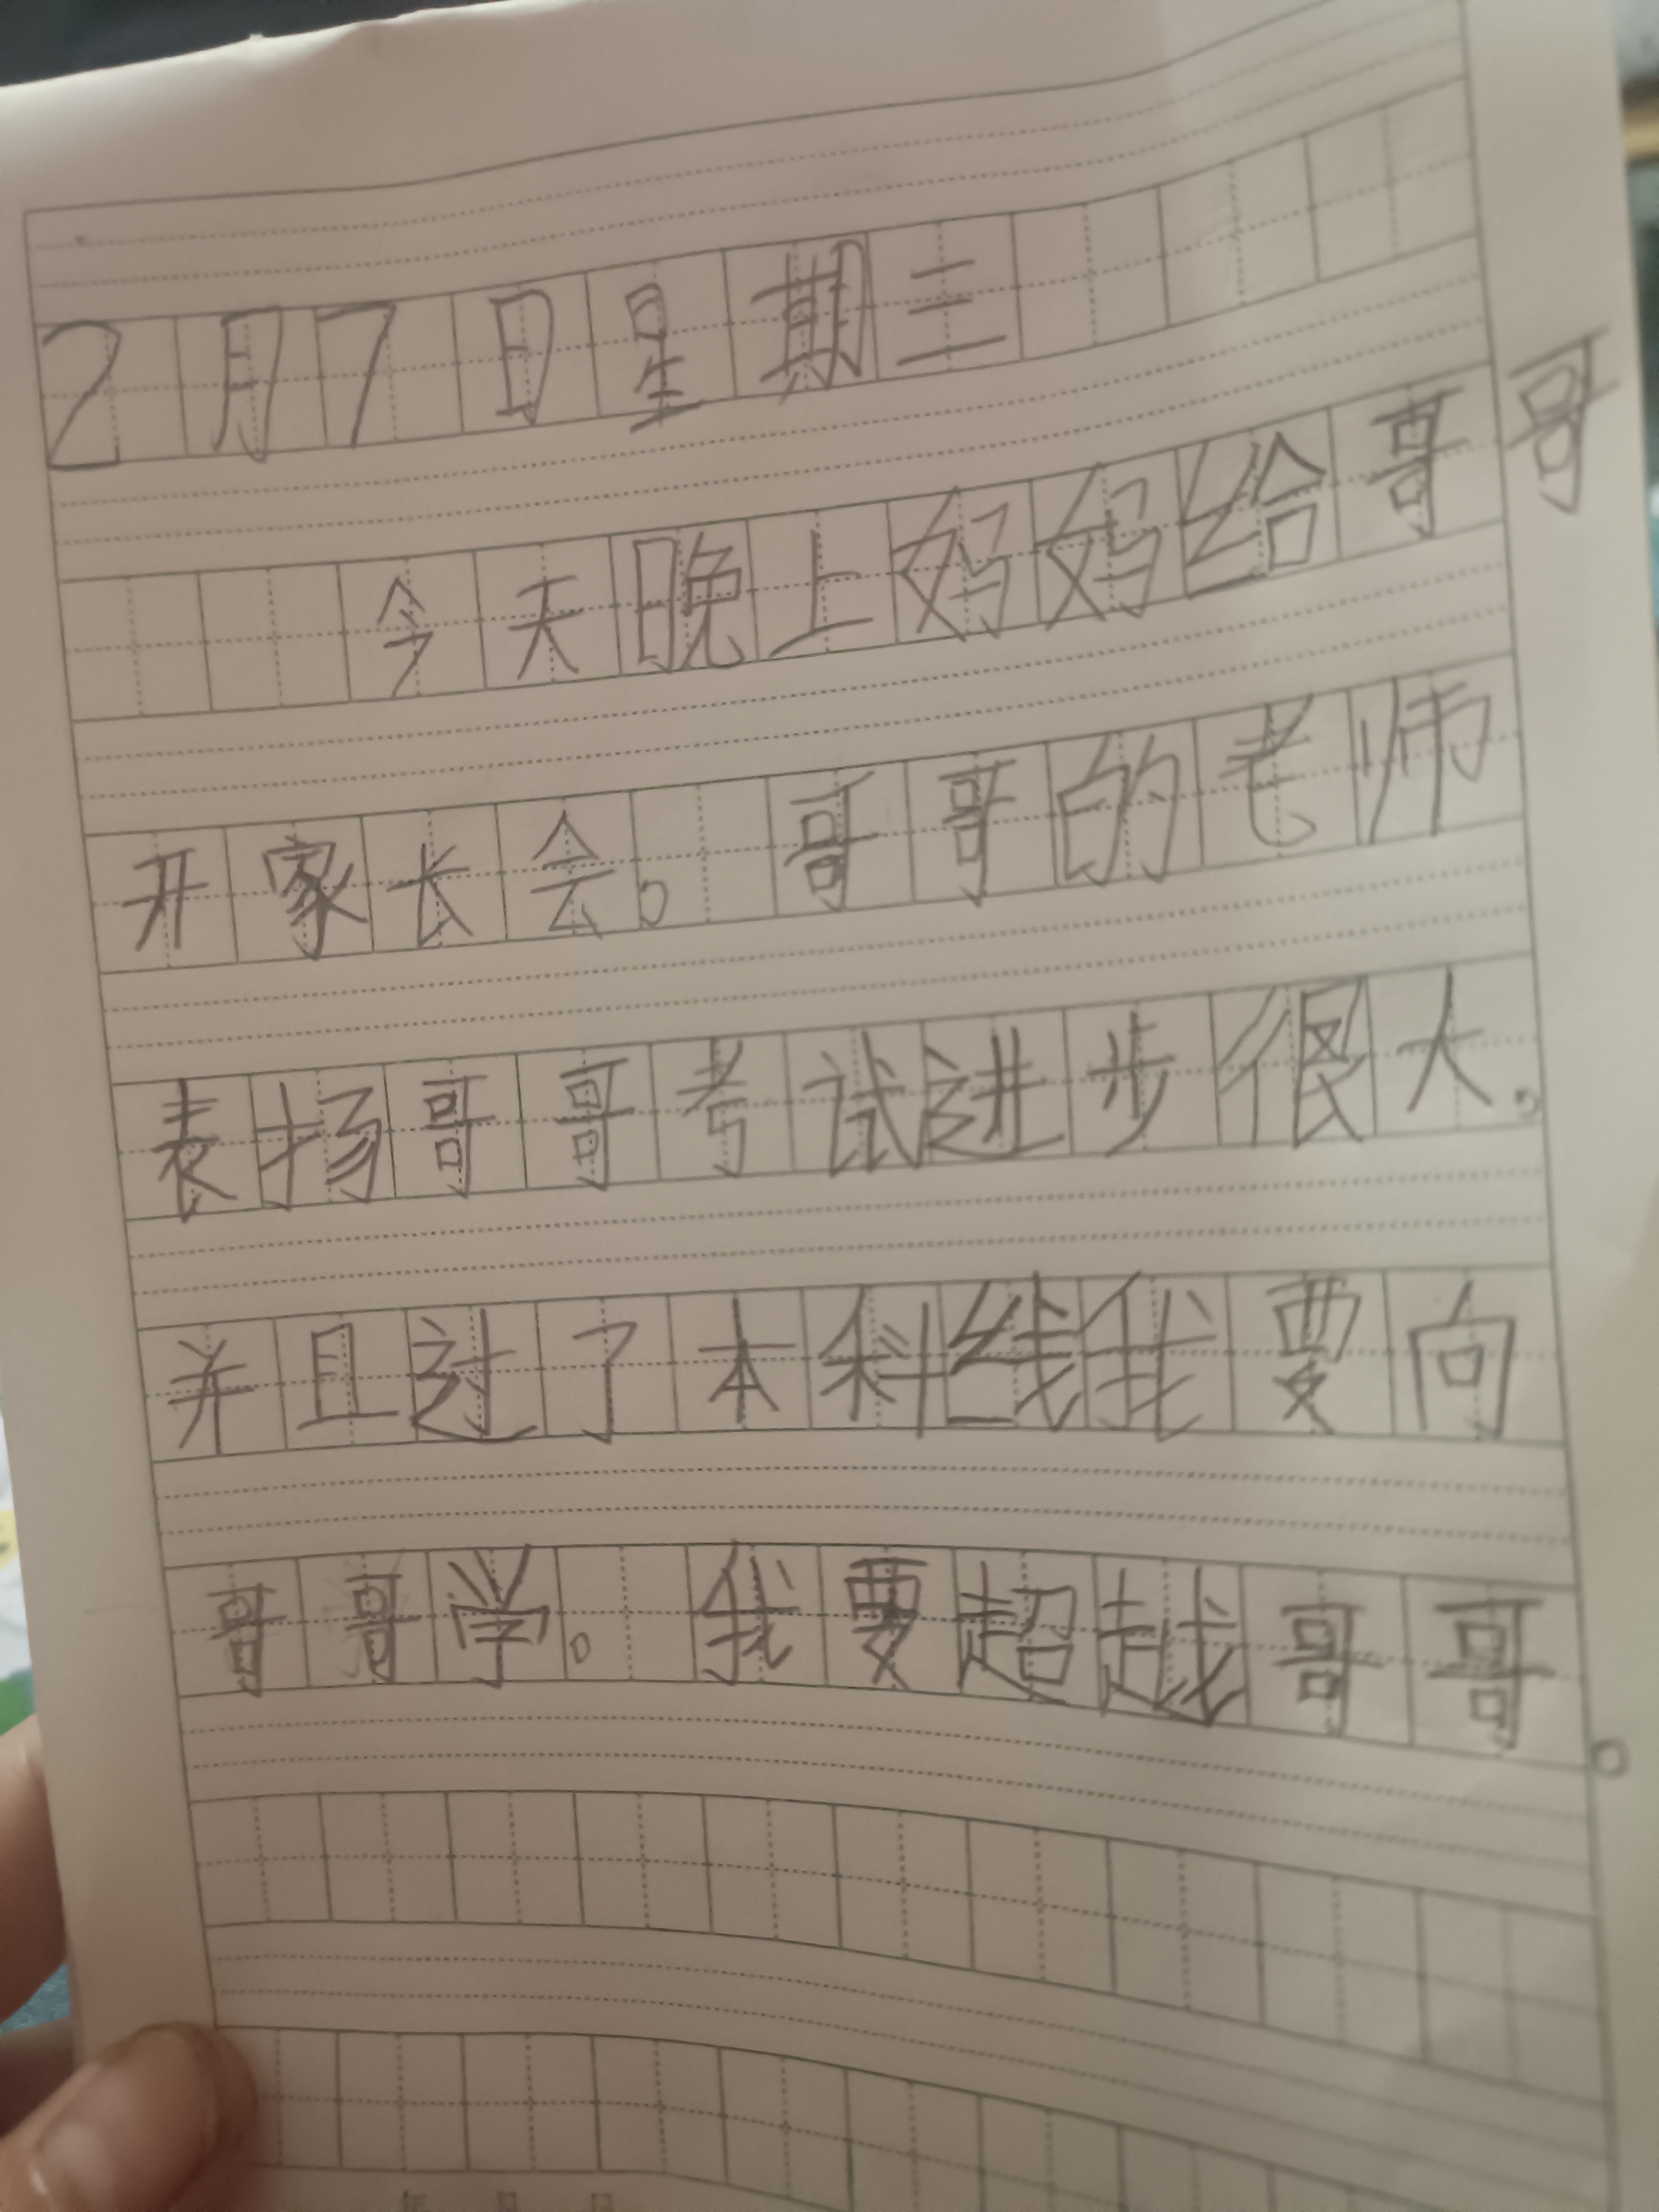 2月7日星期三
今天晚上妈妈给哥哥
开家长会。哥哥的老师
表扬哥哥考试进步很大。
并且过了本科线我要向
哥哥学。我要超越哥哥。
年 月 日